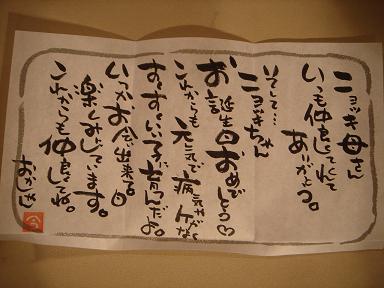 ニョッキ母さん
いつも仲良くしてくれて
ありがとう。
そして…
ニョッキちゃん
お誕生日おめでとう♡
これからも元気で病気やケガなく
すくすくいい子に育つんだよ。
いつかお会い出来る日
楽しみにしてます。
これからも仲良くしてね。